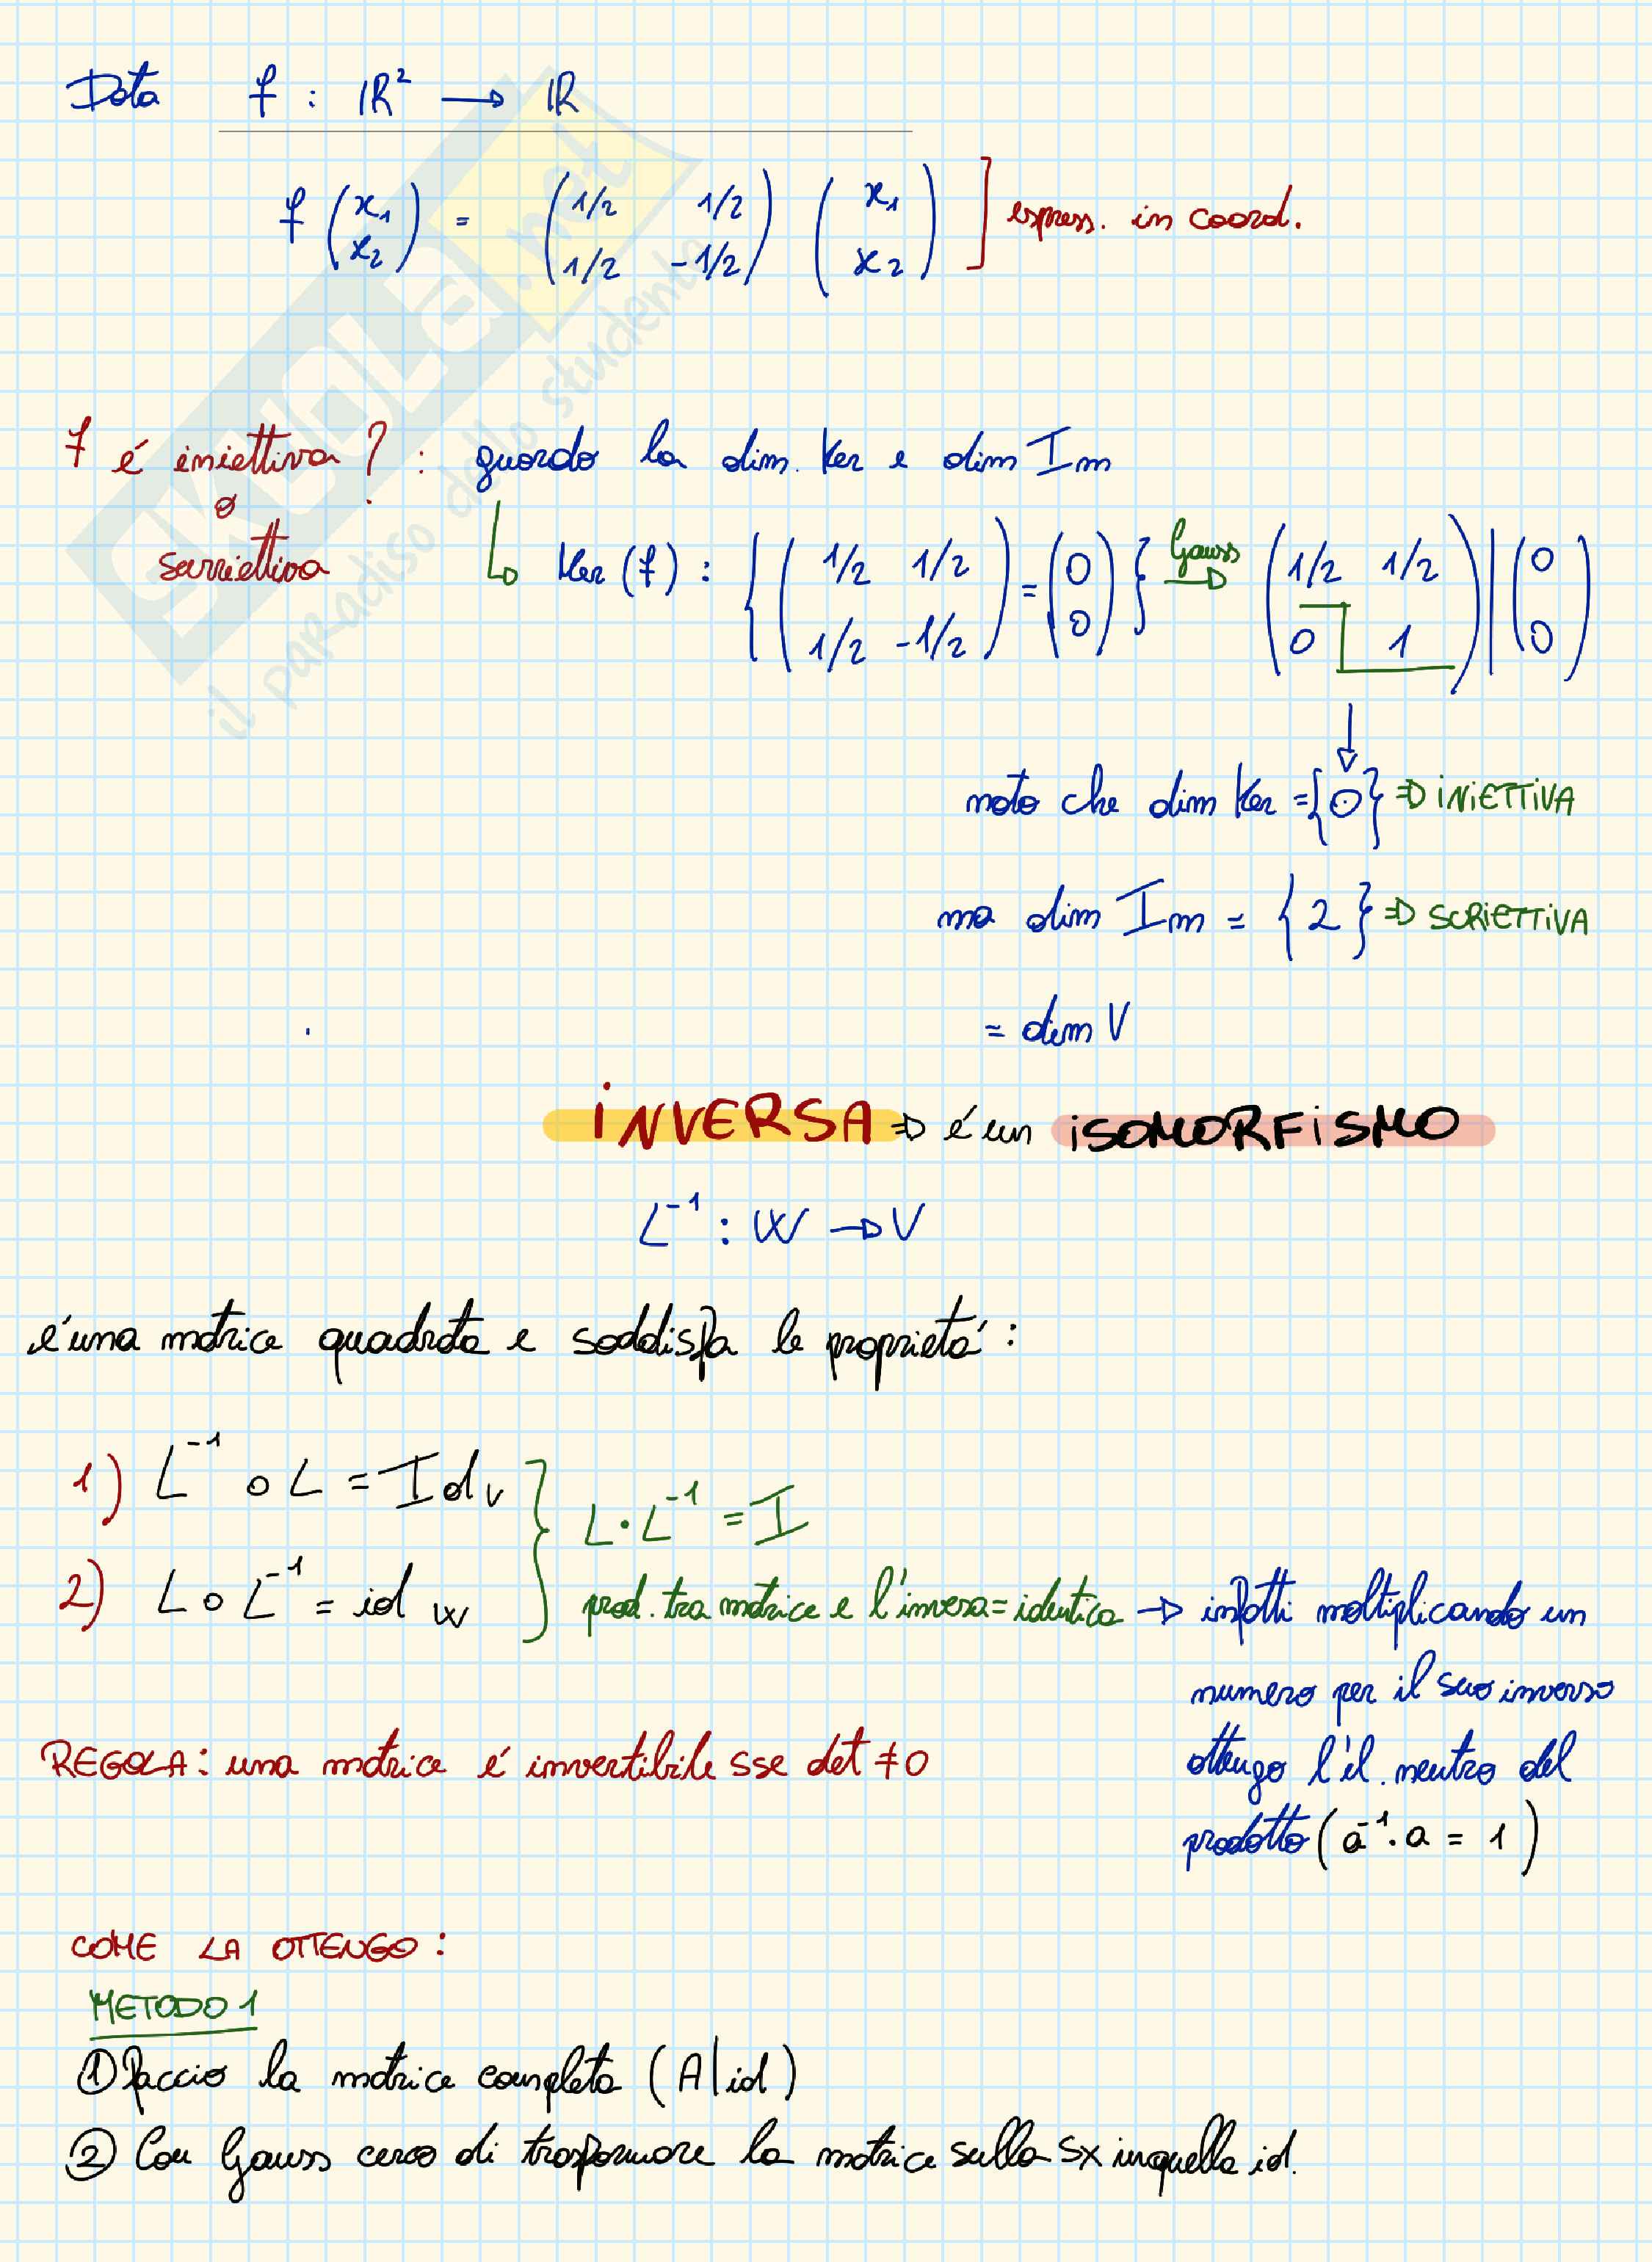 Data f : ℝ² → ℝ
f (x₁ x₂) = (1/2 1/2 1/2 -1/2) (x₁ x₂) ] espress. in coord.
f é iniettiva ? : guardo la dim. Ker e dim Im
o
surriettiva
↳ Ker (f) : { (1/2 1/2 1/2 -1/2) = (0 0) } Gauss → (1/2 1/2 0 1) | (0 0)
noto che dim Ker = {0} ⇒ INIETTIVA
ma dim Im = {2} ⇒ SURIETTIVA
= dim V
INVERSA ⇒ é un ISOMORFISMO
L⁻¹ : W → V
é una matrice quadrata e soddisfa le proprietá :
1) L⁻¹ o L = Id_V
L · L⁻¹ = I
2) L o L⁻¹ = id_W
prod. tra matrice e l'inversa = identica → infatti moltiplicando un
numero per il suo inverso
ottengo l'el. neutro del
prodotto (a⁻¹ · a = 1)
REGOLA : una matrice é invertibile sse det ≠ 0
COME LA OTTENGO :
METODO 1
① Faccio la matrice completa (A | id)
② Con Gauss cerco di trasformare la matrice sulla sx in quella id.
SKUOLA.net
il paradiso dello studente